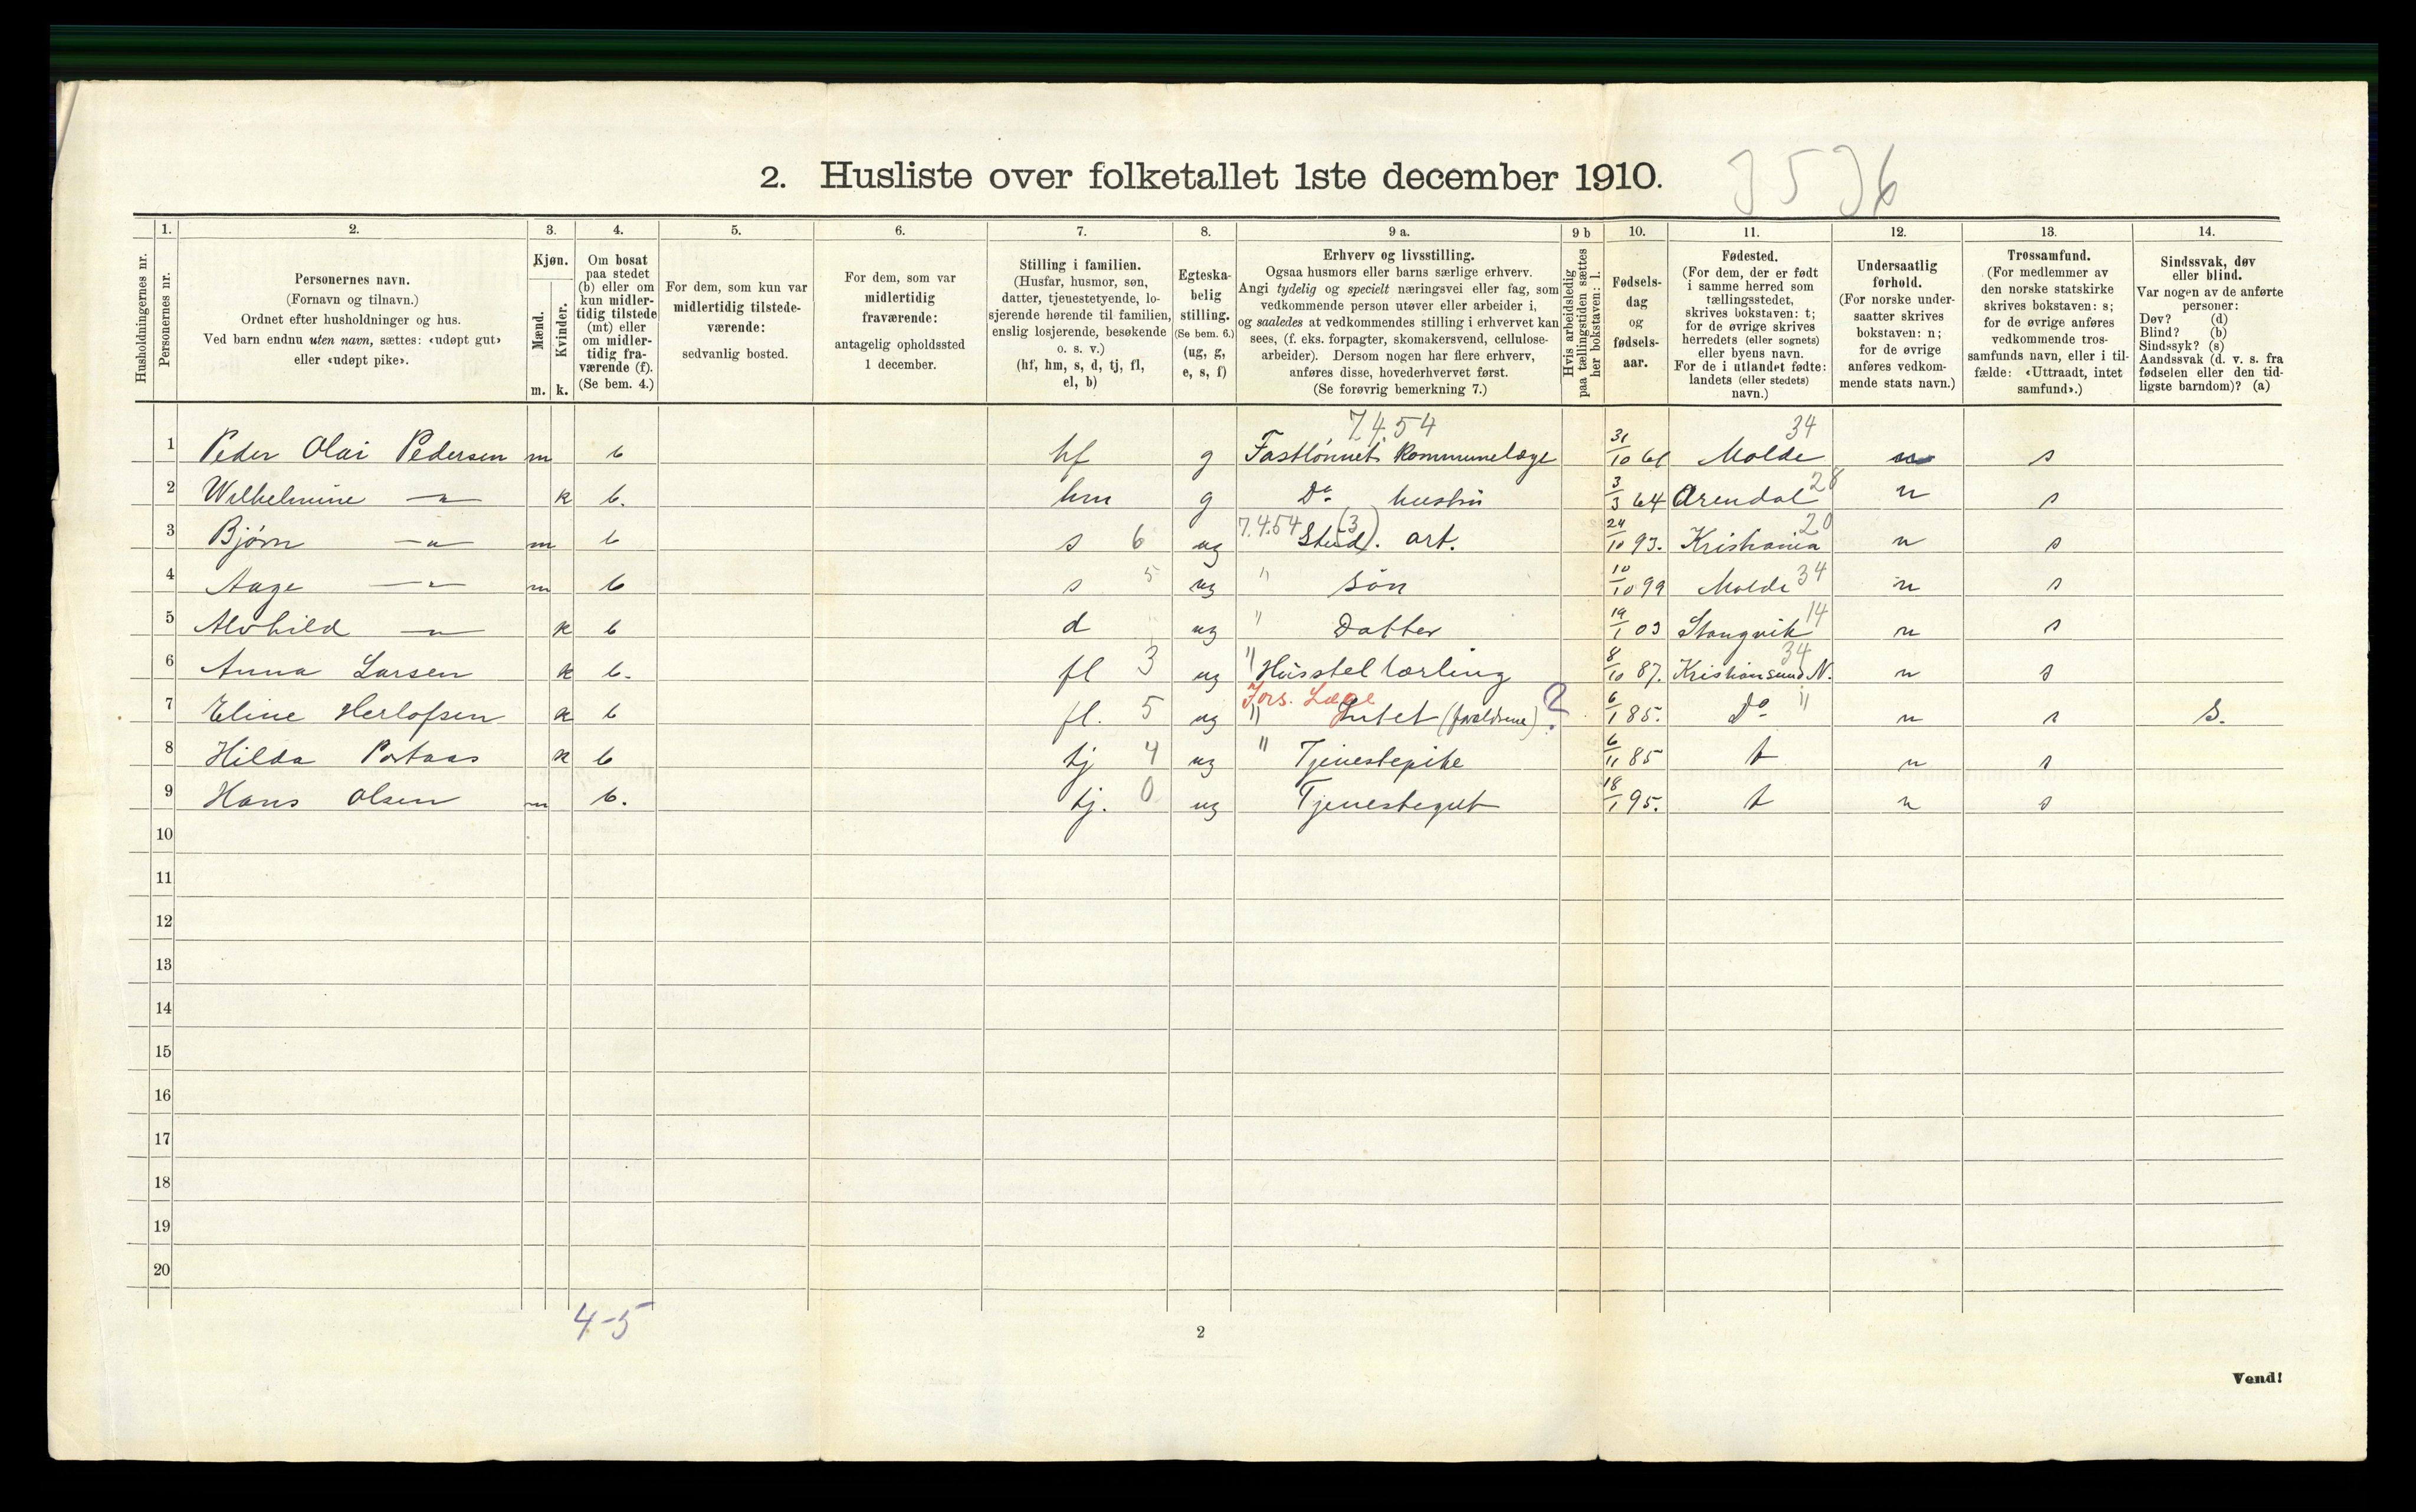 2. Husliste over folketallet 1ste december 1910.
3536
Husholdningernes nr.
1. Personernes nr.
2. Personernes navn.
(Fornavn og tilnavn.)
Ordnet efter husholdninger og hus.
Ved barn endnu uten navn, sættes: «udøpt gut»
eller «udøpt pike».
3. Kjøn.
Mænd. m.
Kvinder. k.
4. Om bosat
paa stedet
(b) eller om
kun midler-
tidig tilstede
(mt) eller
om midler-
tidig fra-
værende (f).
(Se bem. 4.)
5. For dem, som kun var
midlertidig tilstede-
værende:
sedvanlig bosted.
6. For dem, som var
midlertidig
fraværende:
antagelig opholdssted
1 december.
7. Stilling i familien.
(Husfar, husmor, søn,
datter, tjenestetyende, lo-
sjerende hørende til familien,
enslig losjerende, besøkende
o. s. v.)
(hf, hm, s, d, tj, fl,
el, b)
8. Egteska-
belig
stilling.
(Se bem. 6.)
(ug, g,
e, s, f)
9 a. Erhverv og livsstilling.
Ogsaa husmors eller barns særlige erhverv.
Angi tydelig og specielt næringsvei eller fag, som
vedkommende person utøver eller arbeider i,
og saaledes at vedkommendes stilling i erhvervet kan
sees, (f. eks. forpagter, skomakersvend, cellulose-
arbeider). Dersom nogen har flere erhverv,
anføres disse, hovederhvervet først.
(Se forøvrig bemerkning 7.)
9 b Hvis arbeidsledig
paa tællingstiden sættes
her bokstaven: l.
10. Fødsels-
dag
og
fødsels-
aar.
11. Fødested.
(For dem, der er født
i samme herred som
tællingsstedet,
skrives bokstaven: t;
for de øvrige skrives
herredets (eller sognets)
eller byens navn.
For de i utlandet fødte:
landets (eller stedets)
navn.)
12. Undersaatlig
forhold.
(For norske under-
saatter skrives
bokstaven: n;
for de øvrige
anføres vedkom-
mende stats navn.)
13. Trossamfund.
(For medlemmer av
den norske statskirke
skrives bokstaven: s;
for de øvrige anføres
vedkommende tros-
samfunds navn, eller i til-
fælde: «Uttraadt, intet
samfund».)
14. Sindssvak, døv
eller blind.
Var nogen av de anførte
personer:
Døv? (d)
Blind? (b)
Sindssyk? (s)
Aandssvak (d. v. s. fra
fødselen eller den tid-
ligste barndom)? (a)
7.4.54 34
1 Peder Olai Pedersen m b hf g Fastlønnet kommunelæge 31/10 61 Molde n s
2 Wilhelmine —"— k b. hm g Do hustru 3/3 64 Arendal 28 n s
3 Bjørn —"— m b s 6 ug 7.4.54 (3) Stud. art. 24/10 93. Kristiania 20 n s
4 Aage —"— m b s 5 ug " søn 10/10 99 Molde 34 n s
5 Alvhild —"— k b d ug " Datter 19/1 03 Stangvik 14 n s
6 Anna Larsen k b. fl 3 ug " Husstel lærling 8/10 87. Kristiansund N. 34 n s
Fors. Læge
7 Eline Herlofsen k b fl. 5 ug " Intet (forældrene) ? 6/1 85. Do " n s S.
8 Hilda Portaas k b tj 4 ug " Tjenestepike 6/11 85 t n s
9 Hans Olsen m b. tj. 0 ug Tjenestegut 18/1 95. t n s
10
11
12
13
14
15
16
17
18
19
20
4-5
2
Vend!